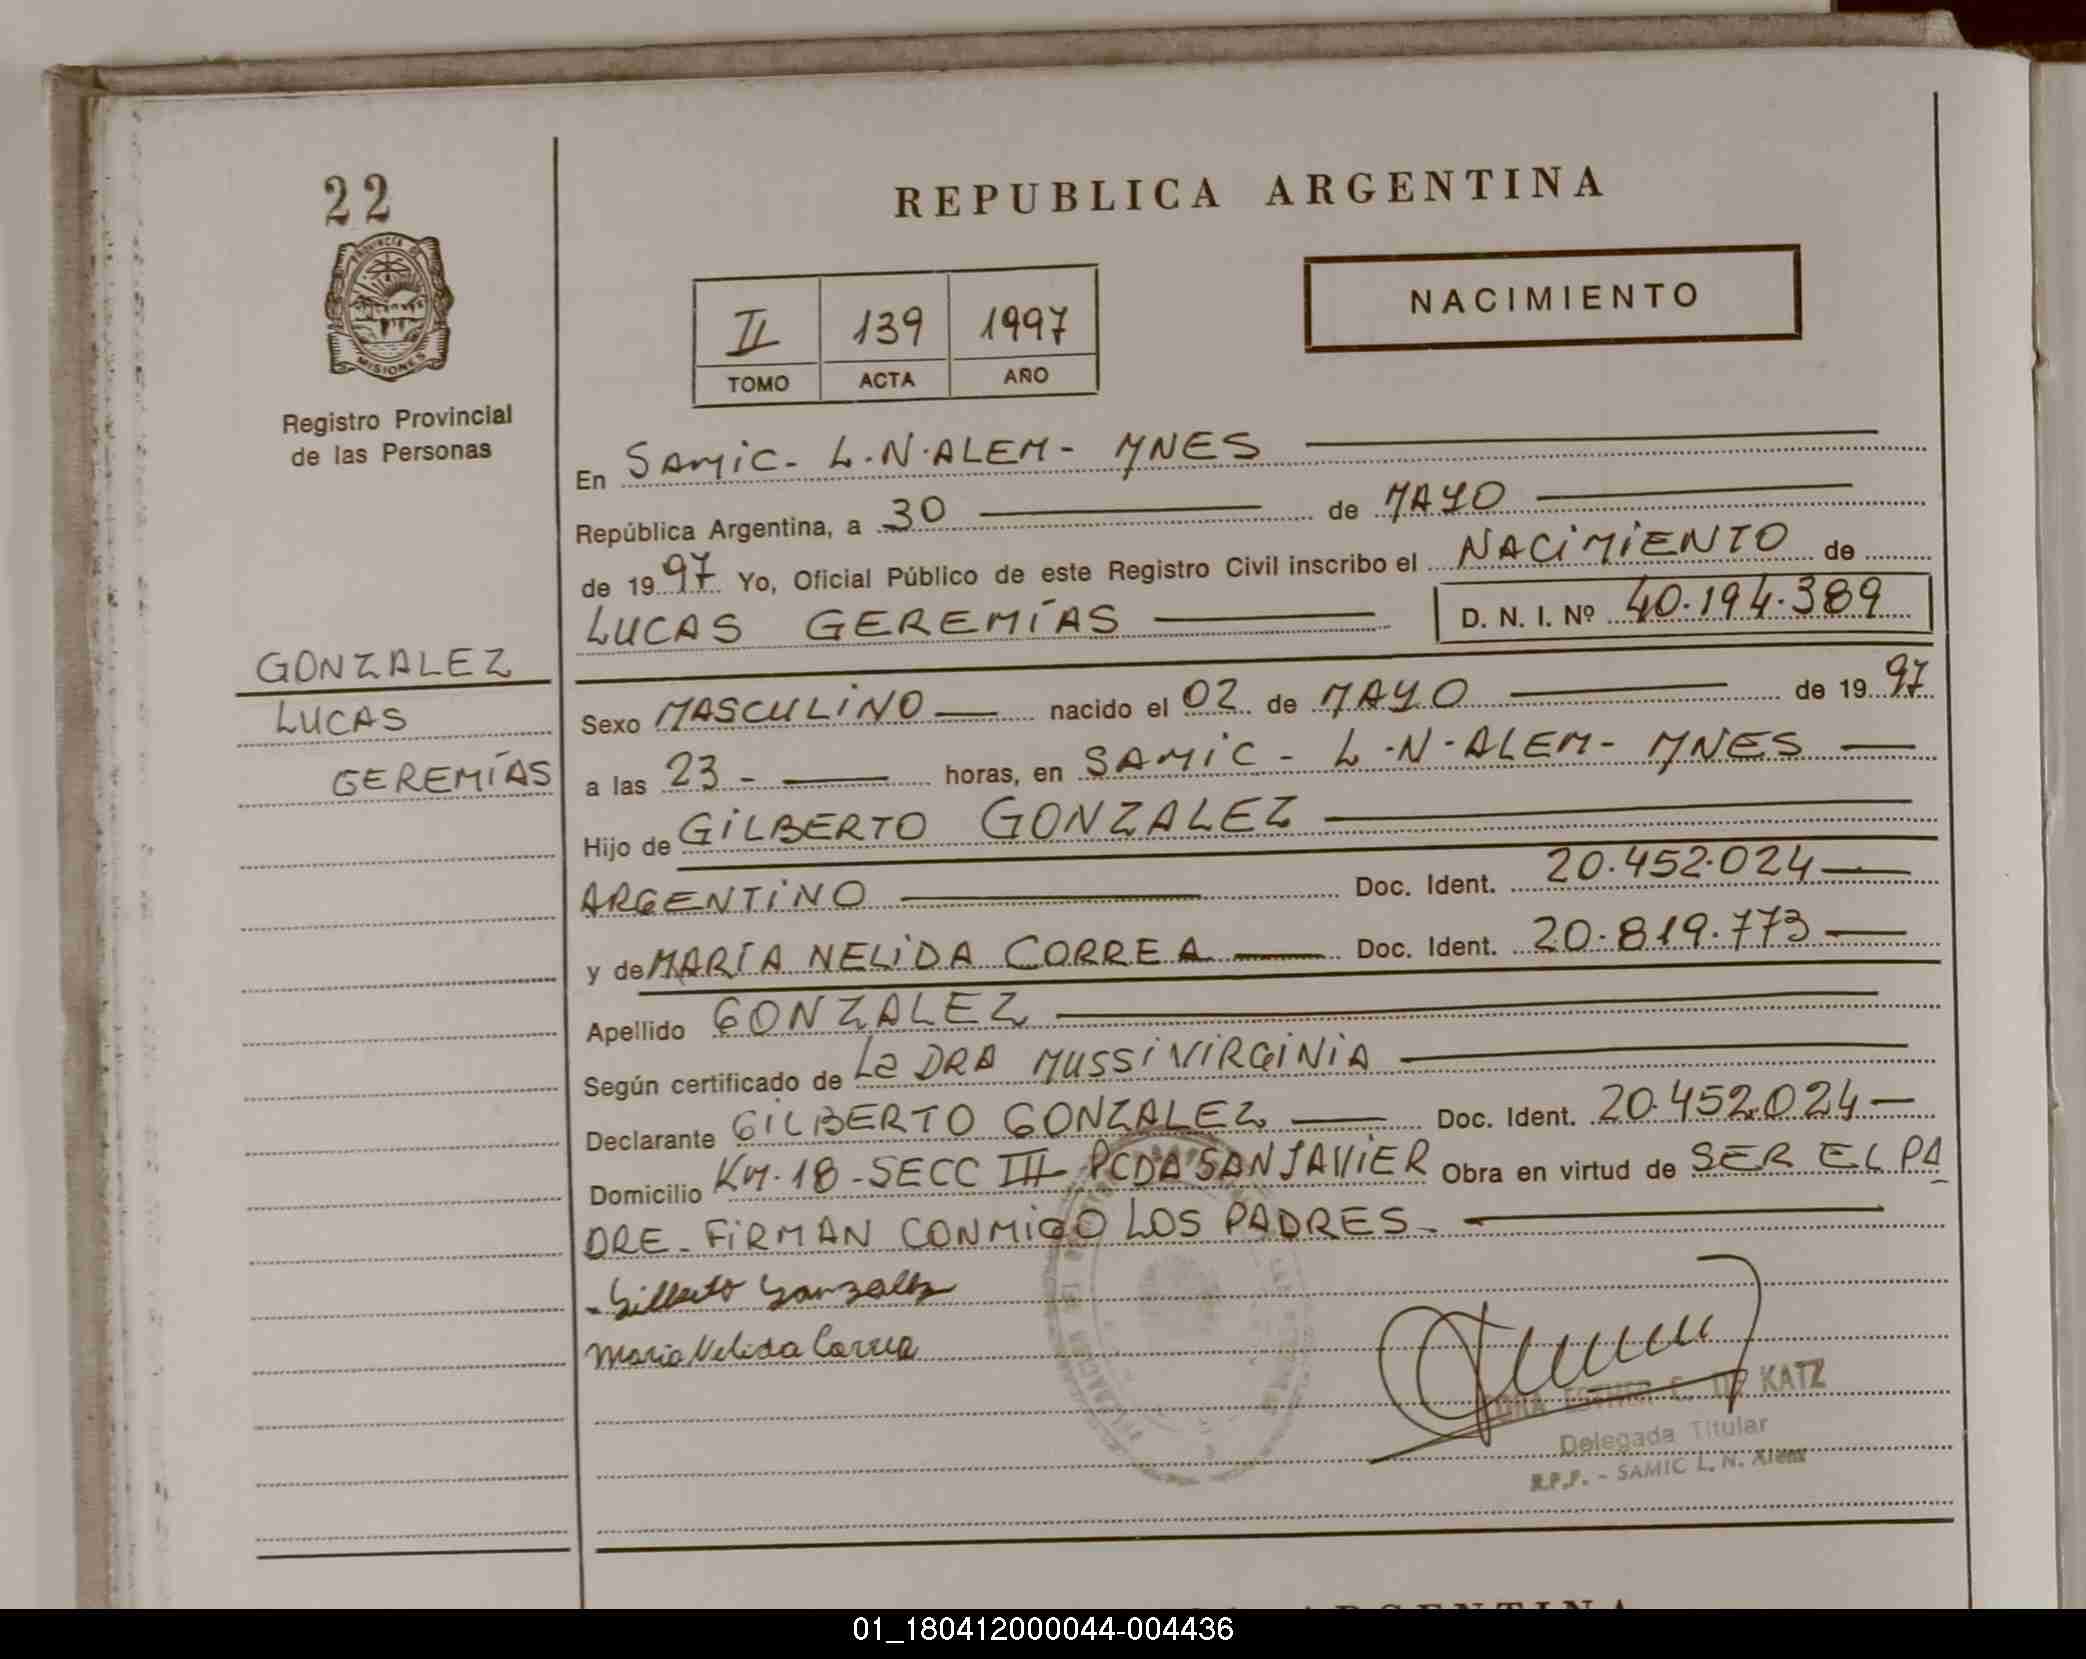 22
REPUBLICA ARGENTINA
PROVINCIA D
MISIONES
Registro Provincial
de las Personas
II 139 1997
TOMO ACTA AÑO
NACIMIENTO
En SAMIC - L.N. ALEM - MNES
República Argentina, a 30 de MAYO
de 1997 Yo, Oficial Público de este Registro Civil inscribo el NACIMIENTO de
LUCAS GEREMÍAS D. N. I. Nº 40.194.389
GONZALEZ
LUCAS
GEREMÍAS
Sexo MASCULINO nacido el 02 de MAYO de 1997
a las 23 - horas, en SAMIC - L-N-ALEM - MNES
Hijo de GILBERTO GONZALEZ
ARGENTINO Doc. Ident. 20.452.024
y de MARÍA NELIDA CORREA Doc. Ident. 20.819.773
Apellido GONZALEZ
Según certificado de La DRA MUSSI VIRGINIA
Declarante GILBERTO GONZALEZ Doc. Ident. 20.452.024
Domicilio KM-18-SECC III PCDA SAN JAVIER Obra en virtud de SER EL PA
DRE - FIRMAN CONMIGO LOS PADRES -
Gilberto Gonzalez
Maria Nelida Correa
DRA ESTHER C. KATZ
Delegada Titular
R.P.P. - SAMIC L. N. Alem
ARGENTINA
01_180412000044-004436